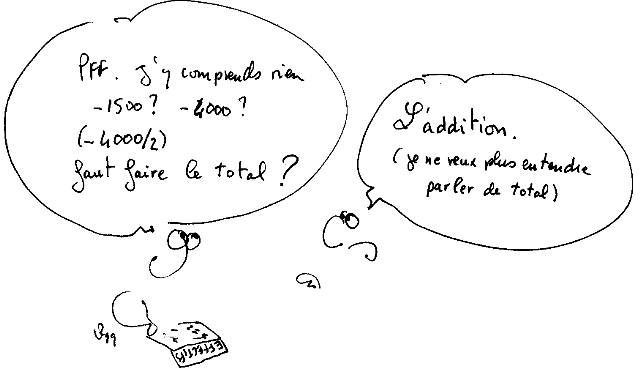 PFF. J'y comprends rien
-1500 ? -4000 ?
(-4000/2)
faut faire le total ?
L'addition.
(je ne veux plus entendre
parler de total)
EFFECTIFS